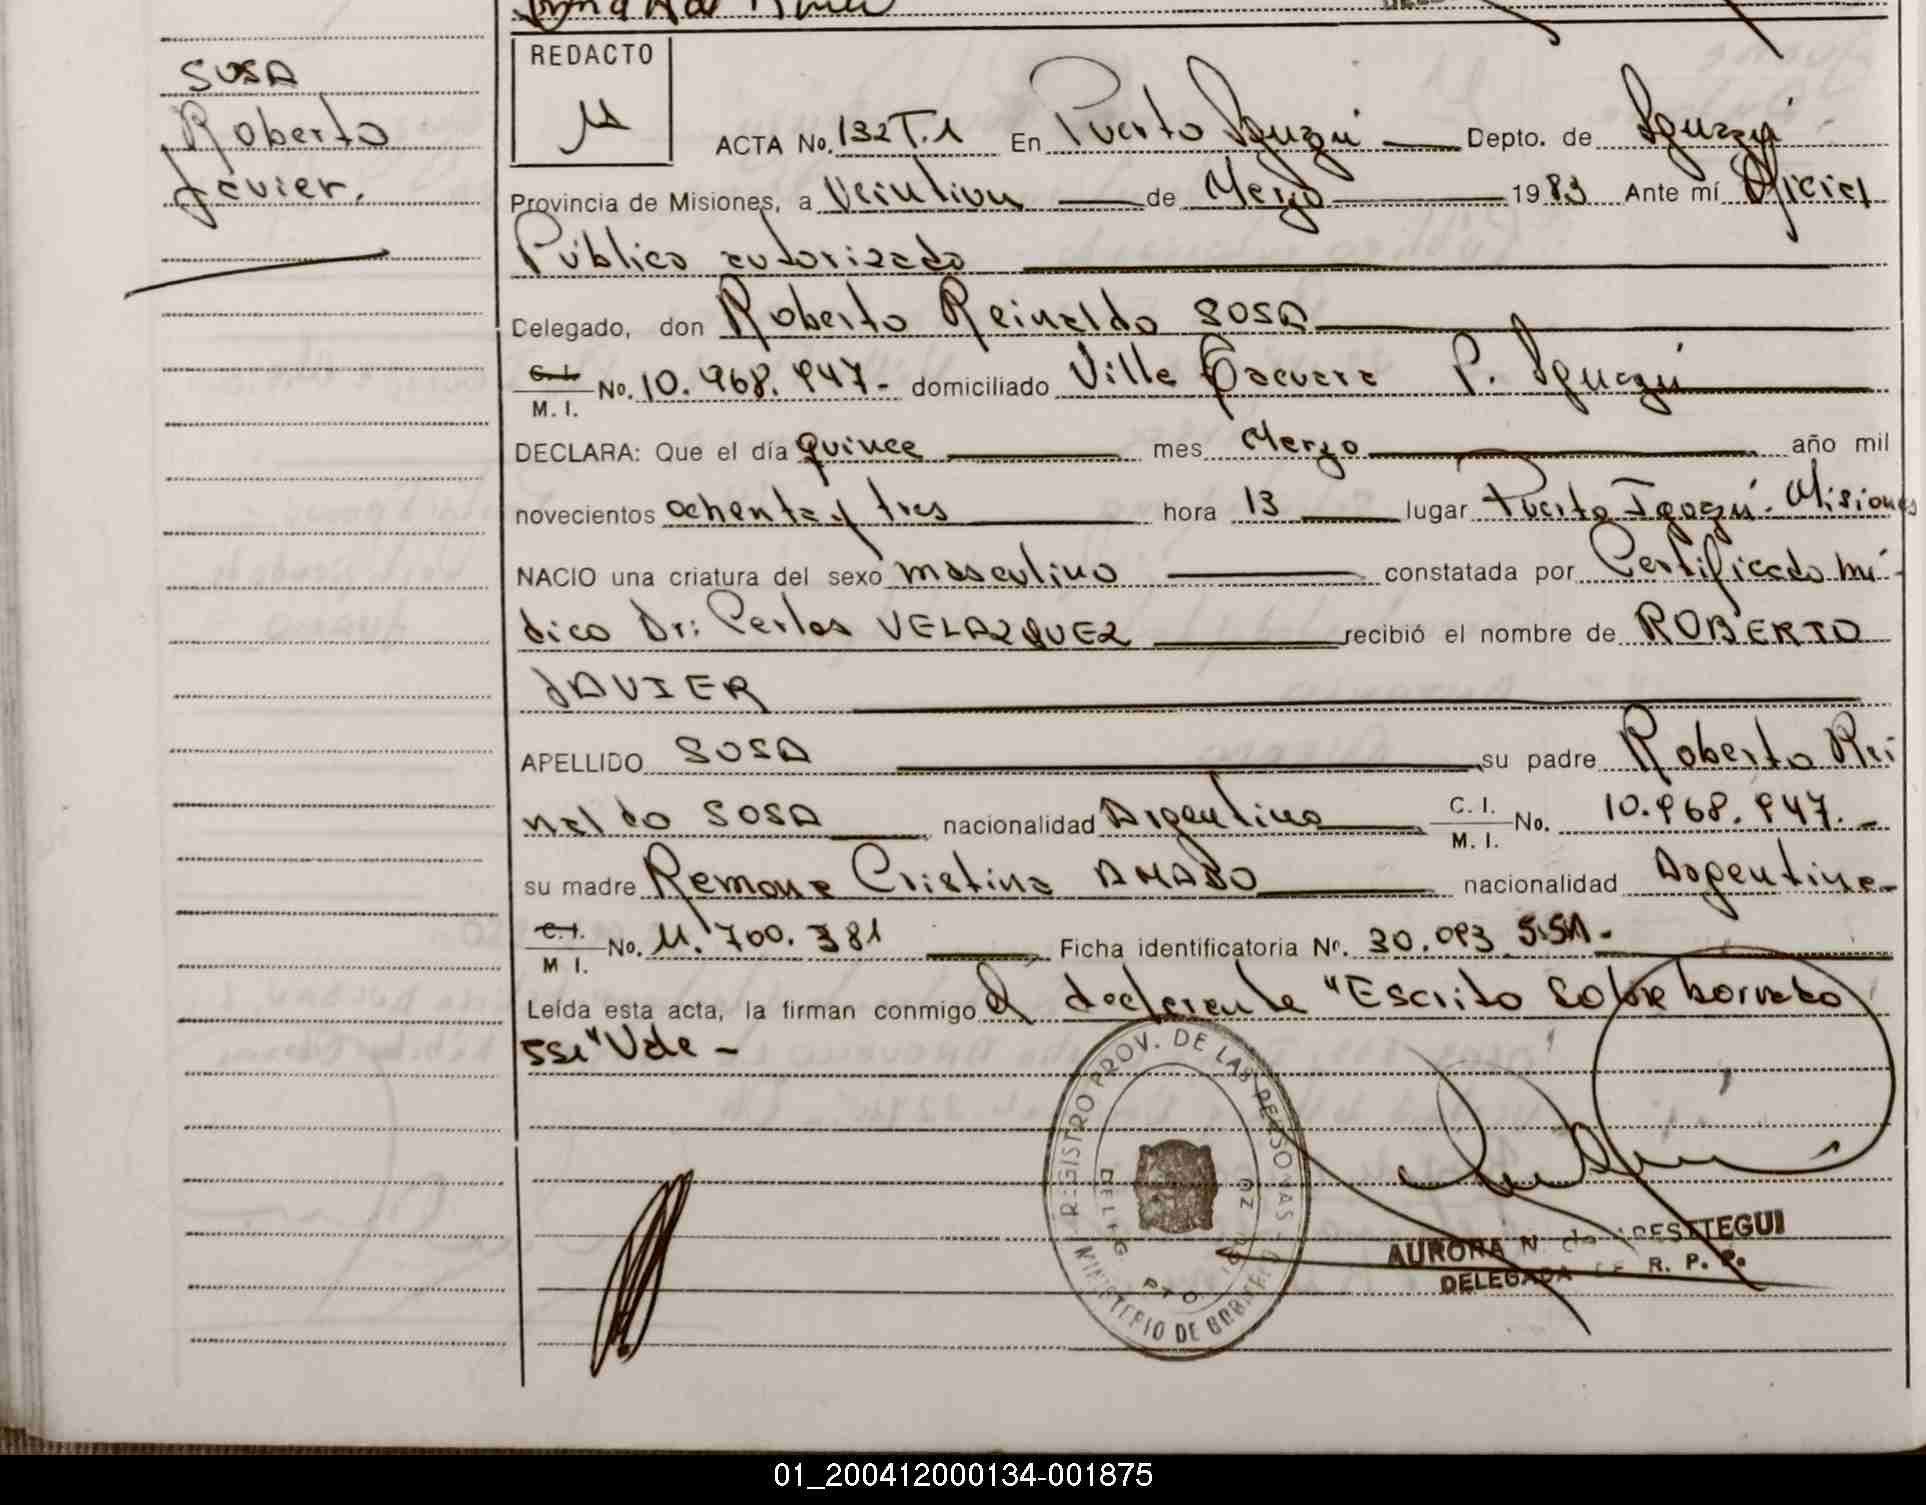 SOSA
Roberto
Javier.
REDACTO
ACTA No. 132 T.1 En Puerto Iguazú Depto. de Iguazú
Provincia de Misiones, a Veintiun de Marzo 1983 Ante mí Oficial
Público autorizado
Delegado, don Roberto Reinaldo SOSA
C.I. M. I. No. 10.968.947.- domiciliado Villa Tacuara P. Iguazú
DECLARA: Que el día quince mes Marzo año mil
novecientos ochenta y tres hora 13 lugar Puerto Iguazú - Misiones
NACIO una criatura del sexo masculino constatada por Certificado mé-
dico Dr: Carlos VELAZQUEZ recibió el nombre de ROBERTO
JAVIER
APELLIDO SOSA su padre Roberto Rei
naldo SOSA, nacionalidad Argentino C. I. M. I. No. 10.968.947.-
su madre Ramona Cristina AMADO nacionalidad Argentina-
C.I. M I. No. 11.700.381 Ficha identificatoria Nº. 30.093.551.-
Leída esta acta, la firman conmigo el declarante "Escrito Sobre borrado
551" Vale -
REGISTRO PROV. DE LAS PERSONAS
MINISTERIO DE GOBIERNO
DELEG. PTO. IGUAZU
AURORA N. de ARESTEGUI
DELEGADA DE R. P. P.
01_200412000134-001875